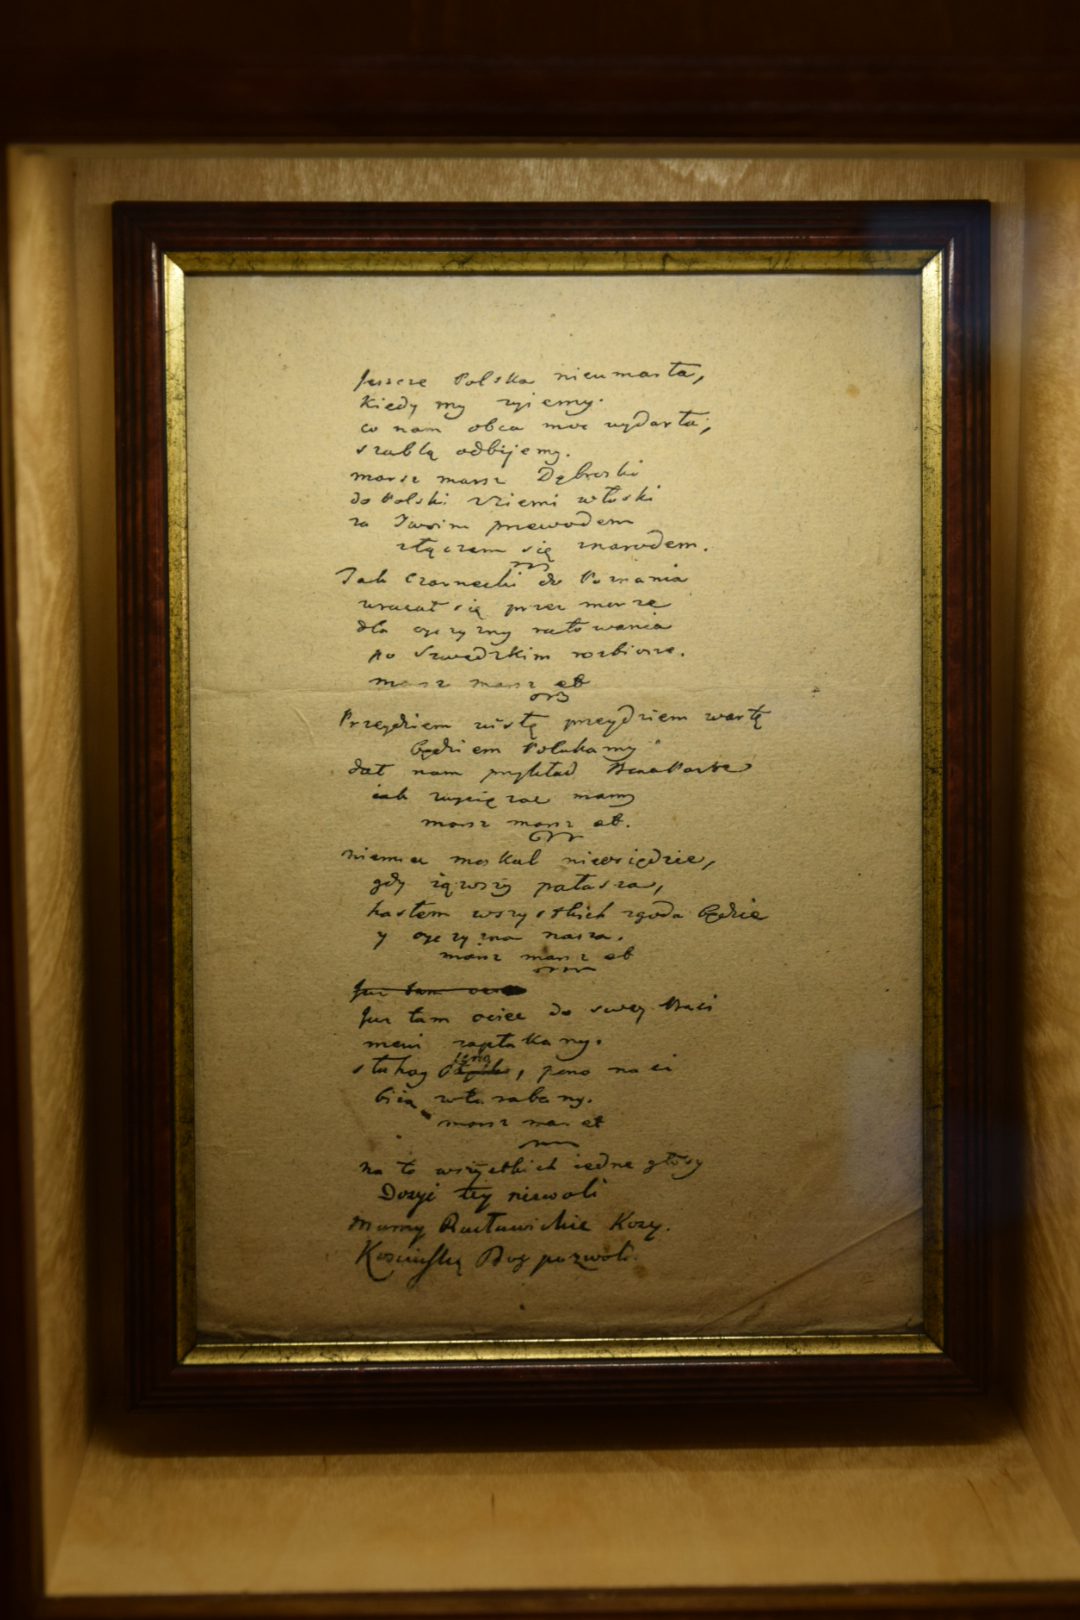 Jeszcze Polska nieumarła,
kiedy my żyiemy.
co nam obca moc wydarła,
szablą odbijemy.
marsz marsz Dąbroski
do Polski zZiemi włoski
za Twoim przewodem
złączem się znarodem.
Jak Czarnecki do Poznania
wracał się przez morze
dla oyczyzny ratowania
po Szwedzkim rozbiorze.
marsz marsz et
Przeydziem wisłę przeydziem wartę
będziem Polakamy
dał nam przykład Bonaparte
iak zwyciężać mamy
marsz marsz et.
niemiec moskal nieosiędzie,
gdy iąwszy pałasza,
hasłem wszystkich zgoda będzie
y oyczyzna nasza.
marsz marsz et
Już tam
Już tam ociec do swey Basi
mówi zapłakany.
słuchay ieno, pono nasi
biią wtarabany.
marsz mar. et
na to wszystkich iedne głosy
Dosyć tey niewoli
Mamy Racławickie Kosy.
Kosciuszkę Bog pozwoli.